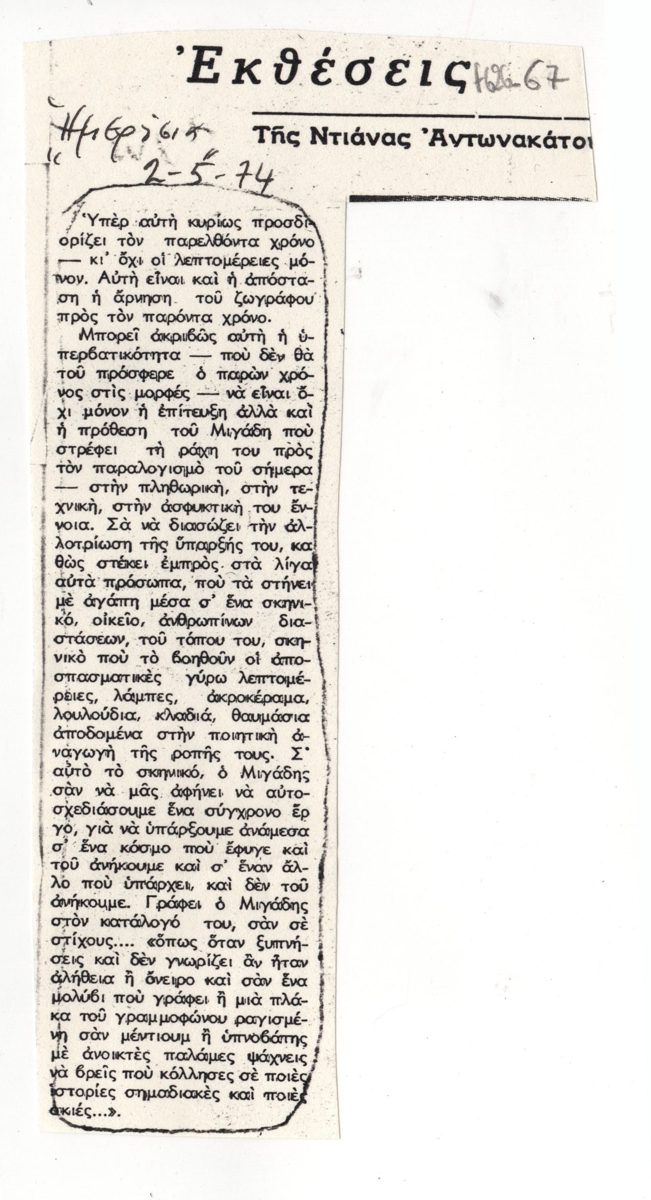 Ἐκθέσεις
67
"Ημερήσια"
2-5-74
Τῆς Ντιάνας Ἀντωνακάτου
Ὑπὲρ αὐτὴ κυρίως προσδι-
ορίζει τὸν παρελθόντα χρόνο
— κι' ὄχι οἱ λεπτομέρειες μό-
νον. Αὐτὴ εἶναι καὶ ἡ ἀπόστα-
ση ἡ ἄρνηση τοῦ ζωγράφου
πρὸς τὸν παρόντα χρόνο.
Μπορεῖ ἀκριβῶς αὐτὴ ἡ ὑ-
περβατικότητα — ποὺ δὲν θὰ
τοῦ πρόσφερε ὁ παρὼν χρό-
νος στὶς μορφές — νὰ εἶναι ὄ-
χι μόνον ἡ ἐπίτευξη ἀλλὰ καὶ
ἡ πρόθεση τοῦ Μιγάδη ποὺ
στρέφει τὴ ράχη του πρὸς
τὸν παραλογισμὸ τοῦ σήμερα
— στὴν πληθωρική, στὴν τε-
χνική, στὴν ἀσφυκτική του ἔν-
νοια. Σὰ νὰ διασώζει τὴν ἀλ-
λοτρίωση τῆς ὕπαρξής του, κα
θὼς στέκει ἐμπρὸς στὰ λίγα
αὐτὰ πρόσωπα, ποὺ τὰ στήνει
μὲ ἀγάπη μέσα σ' ἕνα σκηνι-
κό, οἰκεῖο, ἀνθρωπίνων δια-
στάσεων, τοῦ τόπου του, σκη-
νικὸ ποὺ τὸ βοηθοῦν οἱ ἀπο-
σπασματικὲς γύρω λεπτομέ-
ρειες, λάμπες, ἀκροκέραμα,
λουλούδια, κλαδιά, θαυμάσια
ἀποδομένα στὴν ποιητικὴ ἀ-
ναγωγὴ τῆς ροπῆς τους. Σ'
αὐτὸ τὸ σκηνικό, ὁ Μιγάδης
σὰν νὰ μᾶς ἀφήνει νὰ αὐτο-
σχεδιάσουμε ἕνα σύγχρονο ἔρ
γο, γιὰ νὰ ὑπάρξουμε ἀνάμεσα
σ' ἕνα κόσμο ποὺ ἔφυγε καὶ
τοῦ ἀνήκουμε καὶ σ' ἕναν ἄλ-
λο ποὺ ὑπάρχει, καὶ δὲν τοῦ
ἀνήκουμε. Γράφει ὁ Μιγάδης
στὸν κατάλογό του, σὰν σὲ
στίχους.... «ὅπως ὅταν ξυπνή-
σεις καὶ δὲν γνωρίζει ἂν ἦταν
ἀλήθεια ἢ ὄνειρο καὶ σὰν ἕνα
μολύβι ποὺ γράφει ἢ μιὰ πλά-
κα τοῦ γραμμοφώνου ραγισμέ-
νη σὰν μέντιουμ ἢ ὑπνοβάτης
μὲ ἀνοικτὲς παλάμες ψάχνεις
νὰ βρεῖς ποὺ κόλλησες σὲ ποιὲς
ἱστορίες σημαδιακὲς καὶ ποιὲς
σκιές...».